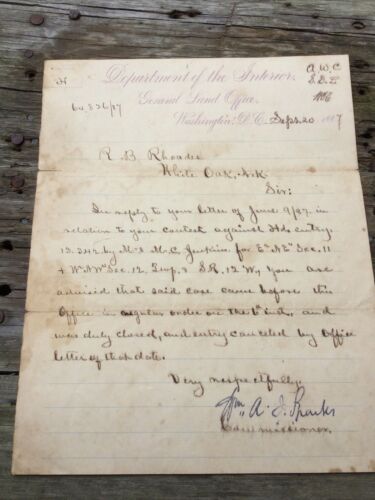 A.W.C
Department of the Interior,
General Land Office,
Washington, D.C. Sept. 20 1887
R. B. Rhoades
White Oak, Ark.
Sir:
In reply to your letter of June 9/87, in
relation to your contest against Hd. entry
by Mrs M. C. Junkin for E² NE⁴ Sec. 11
+ W² NW⁴ Sec. 12, Twp. 8 S R. 12 W, you are
advised that said case came before this
Office in regular order on the inst., and
was duly closed, and entry canceled by Office
letter of that date.
Very respectfully,
Wm. A. J. Sparks
Commissioner.